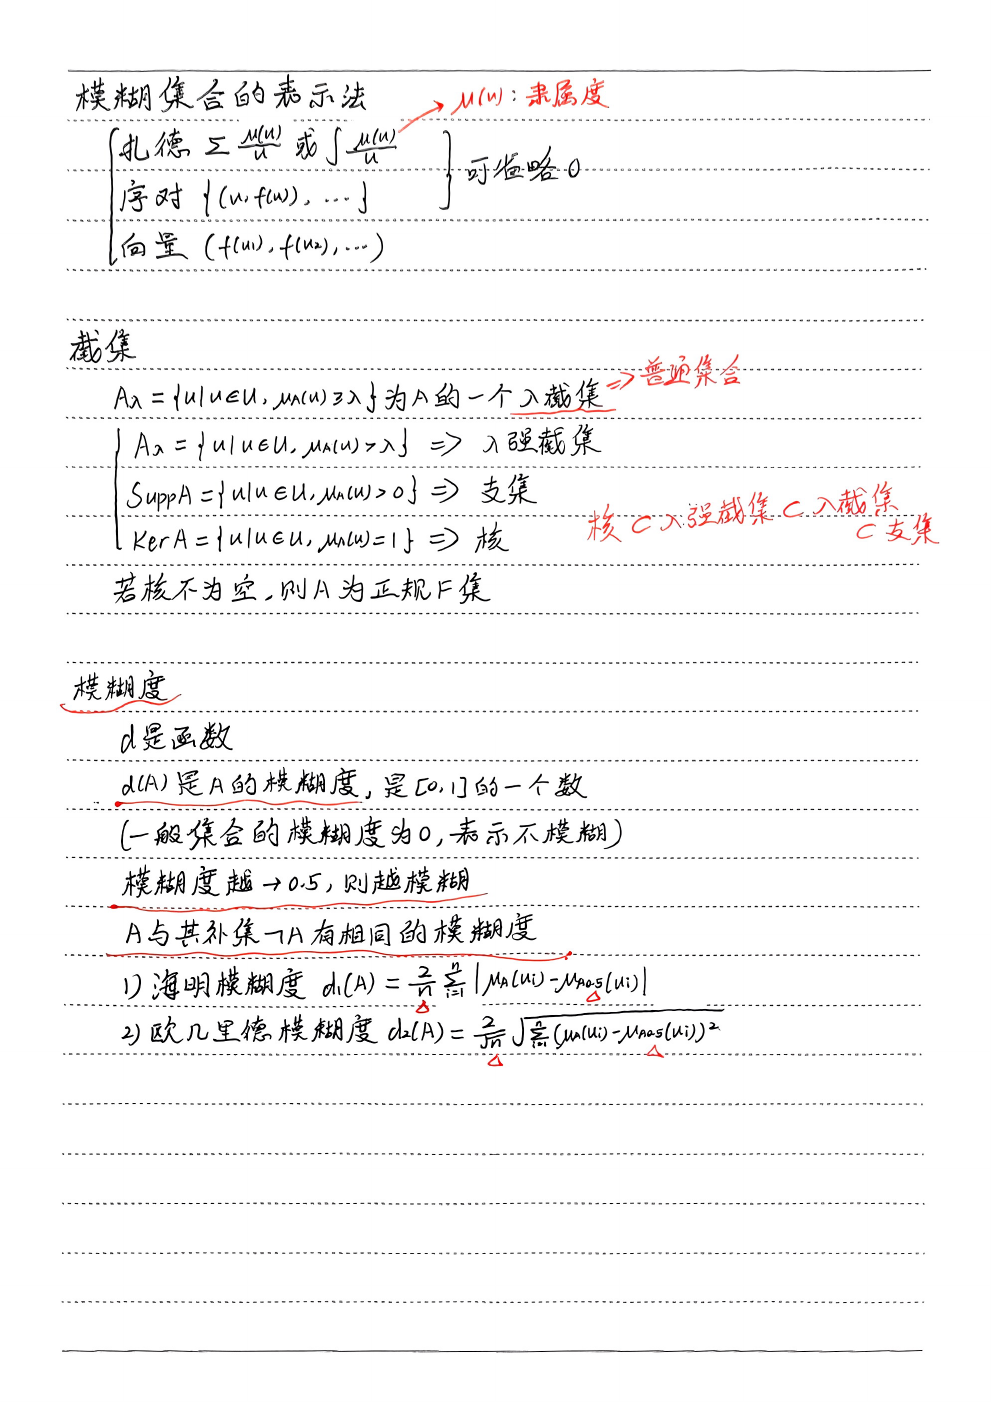 模糊集合的表示法
μ(u):隶属度
扎德 Σ μ(u)/u 或 ∫ μ(u)/u
序对 {(u,f(u)),…}
可省略0
向量 (f(u₁),f(u₂),…)
截集
Aλ={u|u∈U,μA(u)≥λ}为A的一个λ截集
=>普通集合
Aλ={u|u∈U,μA(u)>λ} => λ强截集
SuppA={u|u∈U,μA(u)>0} => 支集
KerA={u|u∈U,μA(u)=1} => 核
核⊂λ强截集⊂λ截集
⊂支集
若核不为空,则A为正规F集
模糊度
d是函数
d(A)是A的模糊度,是[0,1]的一个数
(一般集合的模糊度为0,表示不模糊)
模糊度越→0.5,则越模糊
A与其补集¬A有相同的模糊度
1)海明模糊度 d₁(A)=2/n Σⁿᵢ₌₁|μA(uᵢ)-μA0.5(uᵢ)|
2)欧几里德模糊度 d₂(A)=2/√n √Σⁿᵢ₌₁(μA(uᵢ)-μA0.5(uᵢ))²